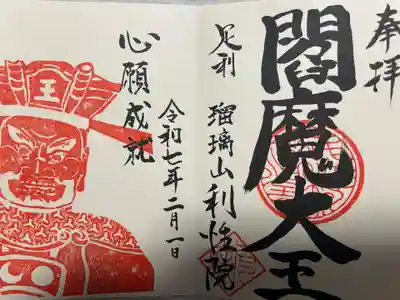 奉拝
閻魔大王
足利 瑠璃山利性院
令和七年二月一日
心願成就
王